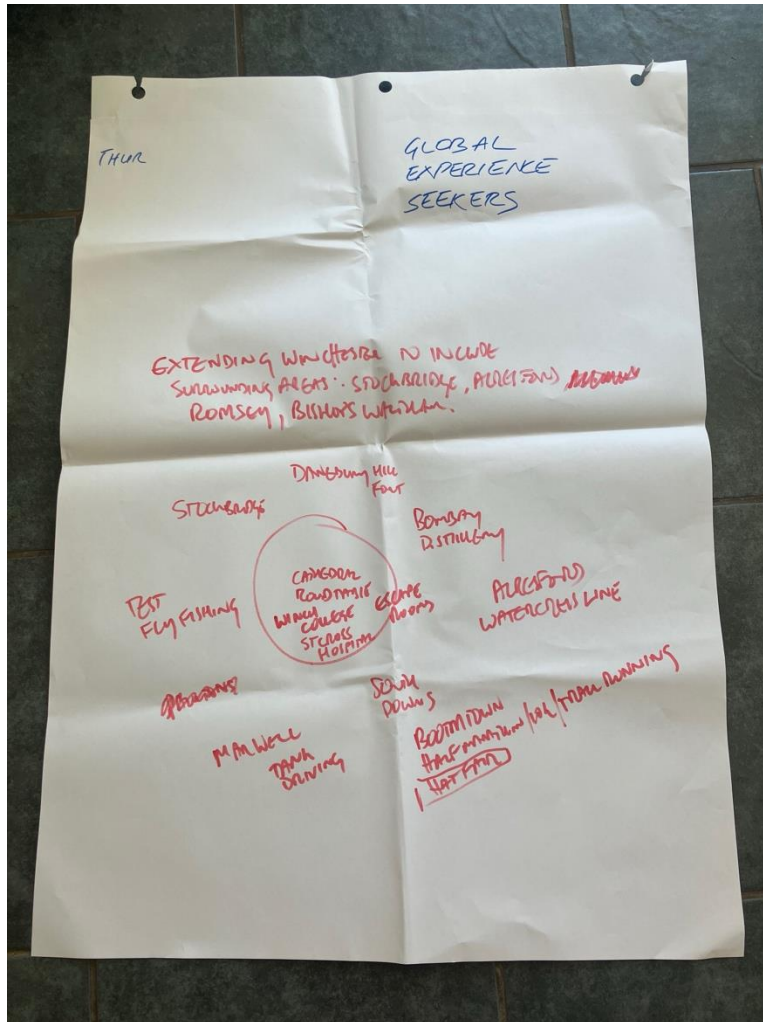 THUR
GLOBAL
EXPERIENCE
SEEKERS
EXTENDING WINCHESTER TO INCLUDE
SURROUNDING AREAS: STOCKBRIDGE, ALRESFORD
ROMSEY, BISHOPS WALTHAM.
DANEBURY HILL
FORT
STOCKBRIDGE
BOMBAY
DISTILLERY
CATHEDRAL
ROUNDTABLE
WINCH
COLLEGE
ST CROSS
HOSPITAL
ESCAPE
ROOMS
TEST
FLY FISHING
ALRESFORD
WATERCRESS LINE
SOUTH
DOWNS
MARWELL
TANK
DRIVING
BOOMTOWN
HALF MARATHON/10K/TRAIL RUNNING
HAT FAIR